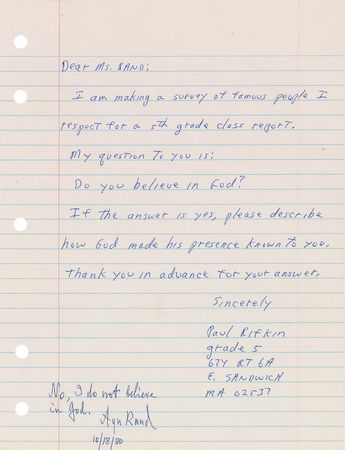 Dear Ms. RAND:
I am making a survey of famous people I
respect for a 5th grade class report.
My question to you is:
Do you believe in God?
If the answer is yes, please describe
how God made his presence known to you.
Thank you in advance for your answer.
Sincerely
Paul Rifkin
grade 5
674 RT 6A
E. SANDWICH
MA 02537
No, I do not believe
in God.
Ayn Rand
10/13/80